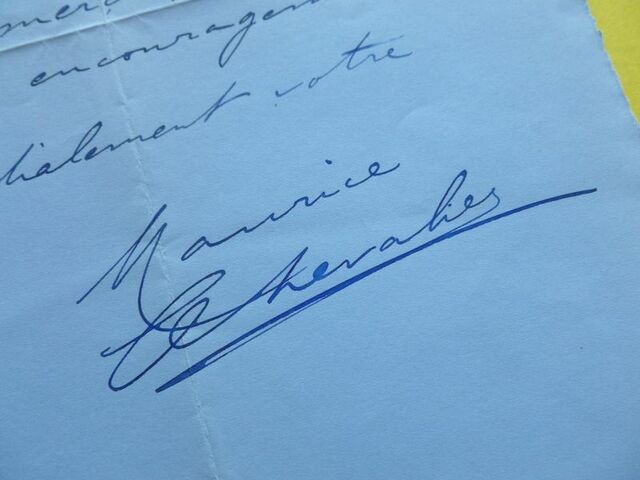 encouragem
dialement votre
Maurice
Chevalier